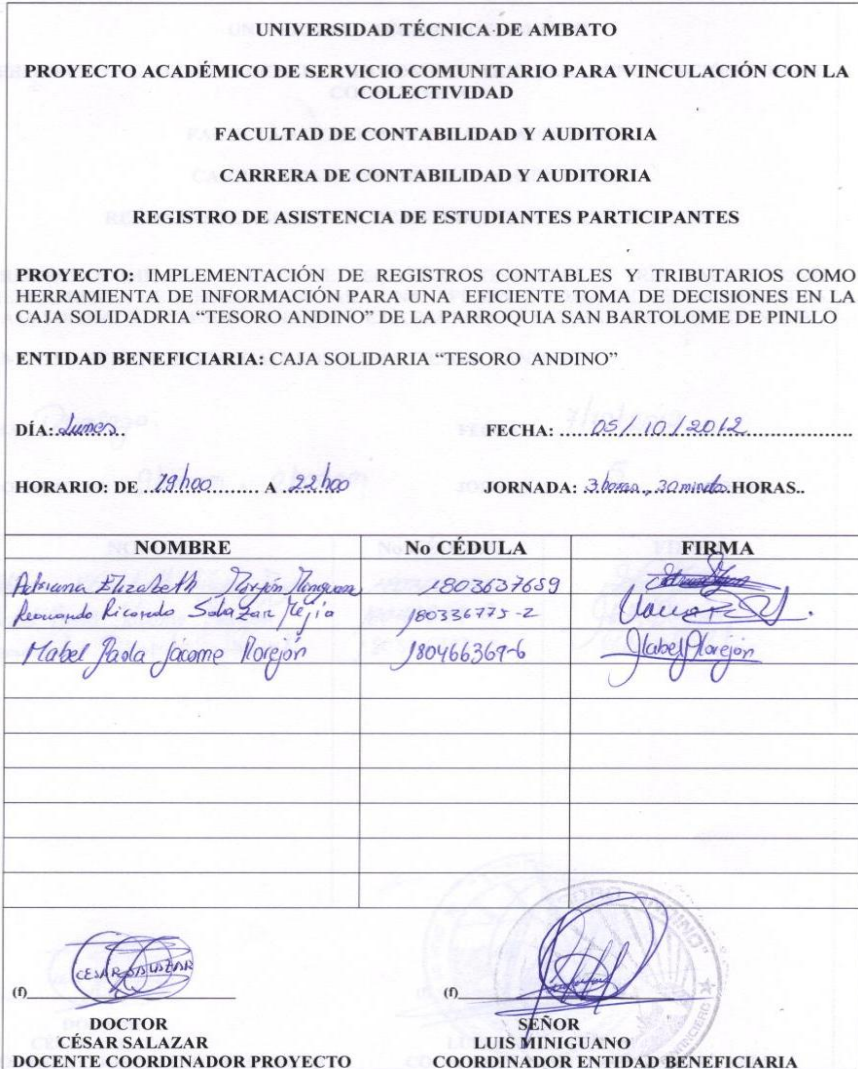 UNIVERSIDAD TÉCNICA DE AMBATO
PROYECTO ACADÉMICO DE SERVICIO COMUNITARIO PARA VINCULACIÓN CON LA
COLECTIVIDAD
FACULTAD DE CONTABILIDAD Y AUDITORIA
CARRERA DE CONTABILIDAD Y AUDITORIA
REGISTRO DE ASISTENCIA DE ESTUDIANTES PARTICIPANTES
PROYECTO: IMPLEMENTACIÓN DE REGISTROS CONTABLES Y TRIBUTARIOS COMO
HERRAMIENTA DE INFORMACIÓN PARA UNA EFICIENTE TOMA DE DECISIONES EN LA
CAJA SOLIDADRIA “TESORO ANDINO” DE LA PARROQUIA SAN BARTOLOME DE PINLLO
ENTIDAD BENEFICIARIA: CAJA SOLIDARIA “TESORO ANDINO”
DÍA: Lunes FECHA: 05/10/2012
HORARIO: DE 19h00 A 22h00 JORNADA: 3 horas, 30 minutos HORAS..
NOMBRE No CÉDULA FIRMA
Adriana Elizabeth 1803637659
Ricardo Salazar Mejía 180336775-2
Mabel Paola Jácome Morejón 180466369-6 Mabel Morejón
CÉSAR SALAZAR
(f) (f)
DOCTOR SEÑOR
CÉSAR SALAZAR LUIS MINIGUANO
DOCENTE COORDINADOR PROYECTO COORDINADOR ENTIDAD BENEFICIARIA